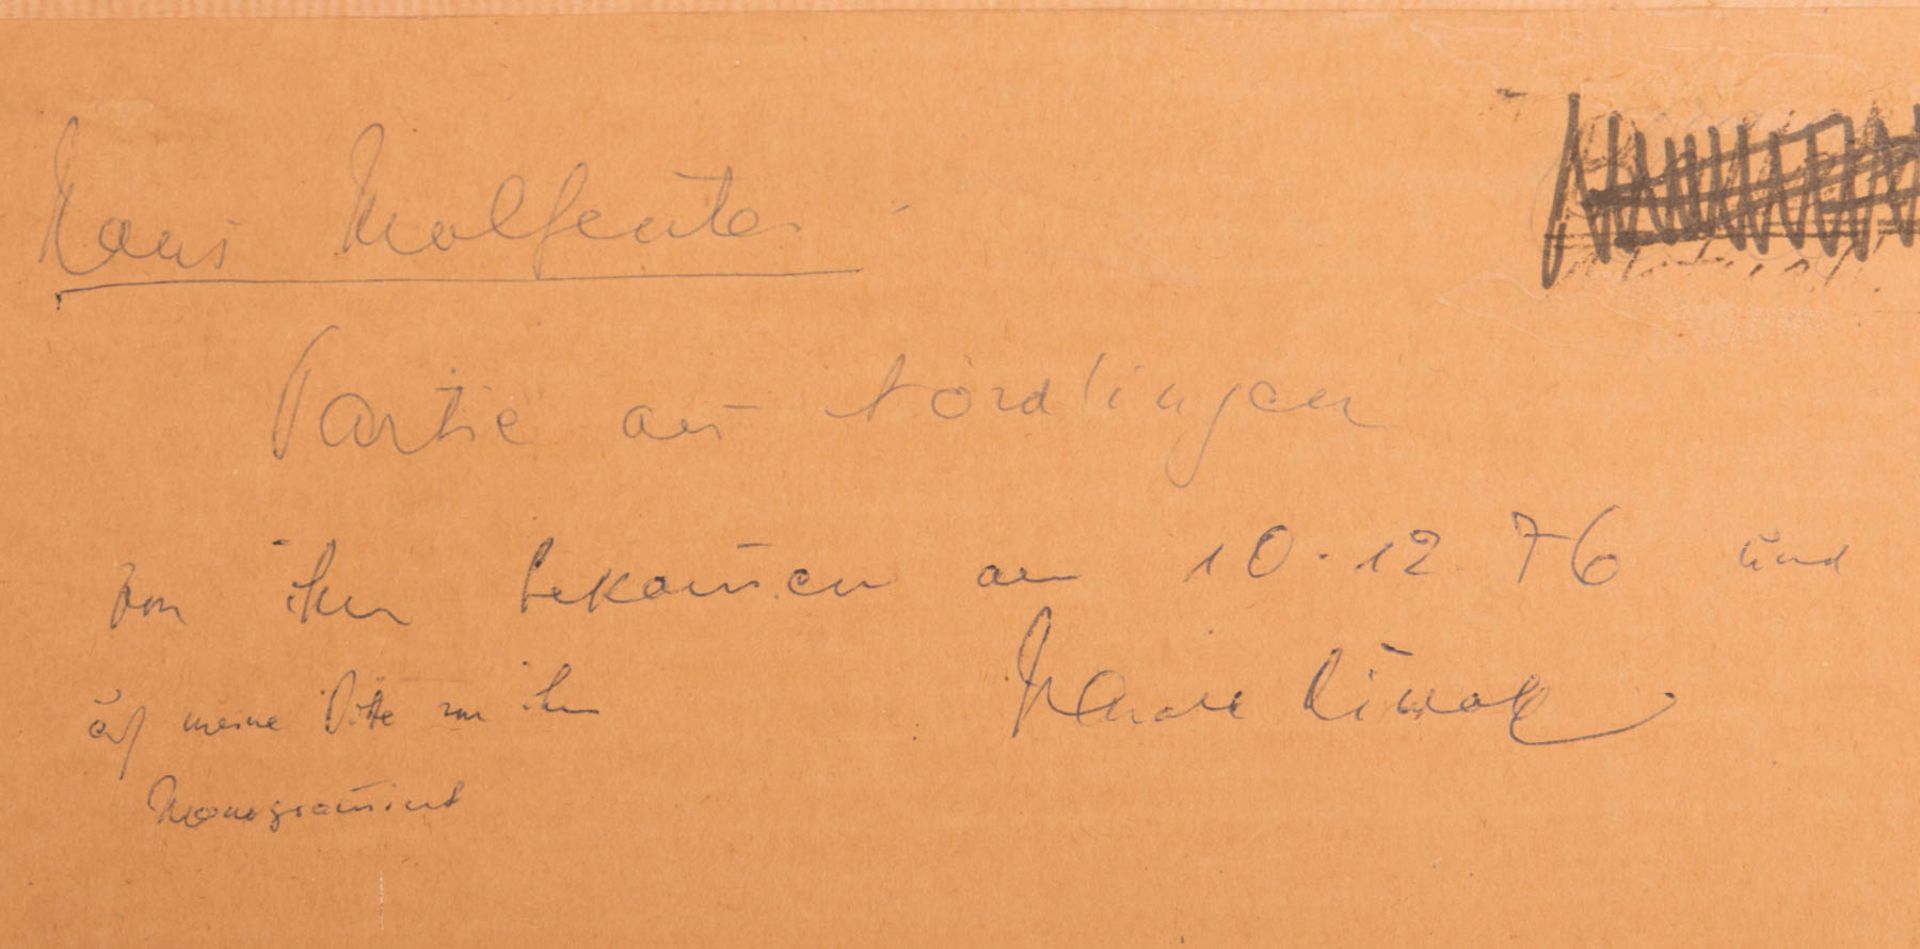 Hans Molfenter
Partie aus Nördlingen
von ihm bekommen am 10.12.76 und
auf meine Bitte von ihm
Monogrammiert